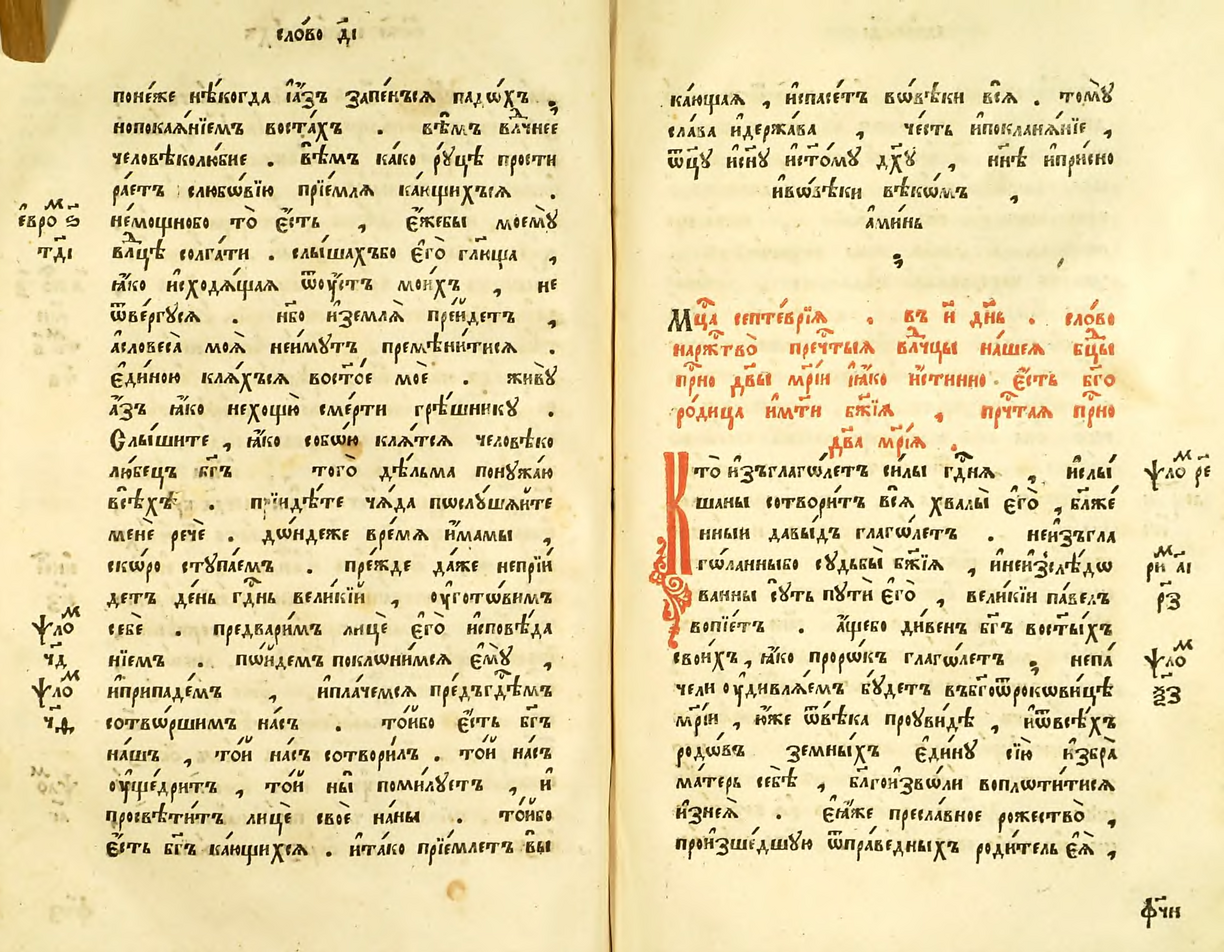 сло́во д҃і
поне́же нѣ́когда і҆а҆́зъ запе́нъсѧ падо́хъ ,
нопокаѧ́нїемъ воста́хъ . вѣ́мъ влⷣчнее
человѣколю́бие . вѣ́мъ ка́ко рꙋ́цѣ прости
ра́етъ слюбо́вїю прїе́млѧ ка́ющихъсѧ .
е҆вро м ѕ
немощнобо то̀ е҆́сть , е҆́жебы моемꙋ̀
т҃ді
влⷣцѣ солга́ти . слы́шахъбо е҆го̀ гл҃юща ,
ꙗ҆́ко и҆сходѧ́щаѧ ѿоу҆́стъ мои́хъ , не
ѿве́ргꙋсѧ . и҆́бо и҆землѧ̀ пре́идетъ ,
а҆словеса̀ моѧ̀ неи́мꙋтъ премѣни́тисѧ .
е҆ди́ною клѧ́хъсѧ восто́е моѐ . живꙋ̀
а҆́зъ ꙗ҆́ко нехощꙋ̀ сме́рти грѣ́шникꙋ .
Слы́шите , ꙗ҆́ко собо́ю клѧ́тсѧ человѣко
лю́бецъ бг҃ъ того̀ дѣ́льма понꙋжа́ю
всѣ́хъ . прїидѣ́те чѧ́да послꙋшѧ́ите
менѐ речѐ . до́ндеже вре́мѧ и҆́мамы ,
ско́ро стꙋпа́емъ . пре́жде да́же непрїи
детъ де́нь гдⷭ҇нь вели́кїй , оу҆гото́вимъ
ѱло м
себѐ . предвари́мъ лицѐ е҆го̀ и҆сповѣ́да
ч҃д
нїемъ . по́йдемъ поклони́мсѧ е҆мꙋ̀ ,
ѱло м
и҆припаде́мъ , и҆пла́чемсѧ пре́дъгдⷭ҇ѣмъ
ч҃д
сотво́ршимъ на́съ . то́йбо е҆́сть бг҃ъ
на́шъ , то́й на́съ сотвори́л . то́й на́съ
оу҆ще́дритъ , то́й ны̀ поми́лꙋетъ , и҆
просвѣти́тъ лицѐ своѐ на́ны . то́йбо
е҆́сть бг҃ъ ка́ющихсѧ . и҆та́ко прїе́млетъ вы̀
ка́ющаѧ , и҆спасе́тъ вовѣ́ки всѧ̀ . томꙋ̀
сла́ва и҆держа́ва , че́сть и҆покланѧ́нїе ,
ѿц҃ꙋ и҆сн҃ꙋ и҆ст҃о́мꙋ дх҃ꙋ , нн҃ѣ и҆при́сно
и҆вовѣ́ки вѣко́мъ ,
а҆ми́нь
Мцⷭ҇а септе́врїѧ . въ и҃ дн҃ь . сло́во
наржⷭ҇тво̀ пречⷭ҇тыѧ влⷣчцы на́шеѧ бц҃ы
прⷭ҇но дв҃ы мр҃іи ꙗ҆́ко и҆́стинно е҆́сть бг҃о
ро́дица и҆мт҃и бж҃їѧ , прⷭ҇чтаѧ прⷭ҇но
дв҃а мр҃їѧ .
Кто̀ и҆зъглаго́летъ си́лы гдⷭ҇нѧ , и҆слы́
ѱло м ре
шаны сотвори́тъ всѧ̀ хвалы̀ е҆го̀ , блаже́
нныи давы́дъ глаго́летъ . неи҆зъгла
го́ланныбо сꙋдьбы̀ бж҃їѧ , и҆неи҆зслѣ́до
ри м а҃і
ванны сꙋ́ть пꙋтѝ е҆го̀ , вели́кїи па́велъ
р҃з
вопїе́тъ . а҆́щебо ди́венъ бг҃ъ восты́хъ
свои́хъ , ꙗ҆́ко проро́къ глаго́летъ , непа́
ѱло м
чели оу҆дивлѧ́емъ бꙋ́детъ въбг҃оѿрокови́цѣ
ѯ҃з
мр҃іи , ю҆́же ѿвѣ́ка проꙋви́дѣ , и҆ѿвсѣ́хъ
родо́въ земны́хъ е҆ди́нꙋ сїю̀ и҆збра̀
ма́терь себѣ̀ , благои҆зво́ли воплоти́тисѧ
и҆знеѧ̀ . е҆ѧ́же пресла́вное рожество̀ ,
произше́дшꙋю ѿпра́ведныхъ роди́тель е҆ѧ̀ ,
ф҃чи